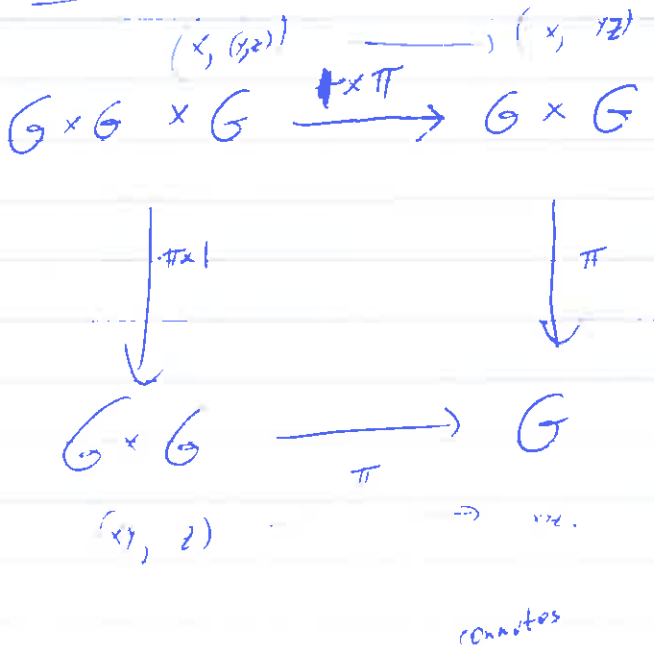 (x, (y,z)) → (x, yz)
G × G × G 1×π → G × G
π×1 π
G × G → G
π
(xy, z) → xyz.
commutes